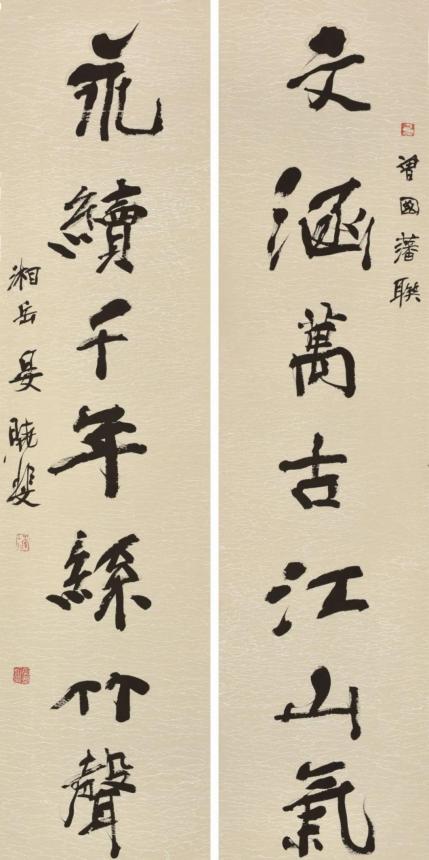 曾國藩聯
文涵萬古江山氣
永續千年絲竹聲
湘岳晏曉斐